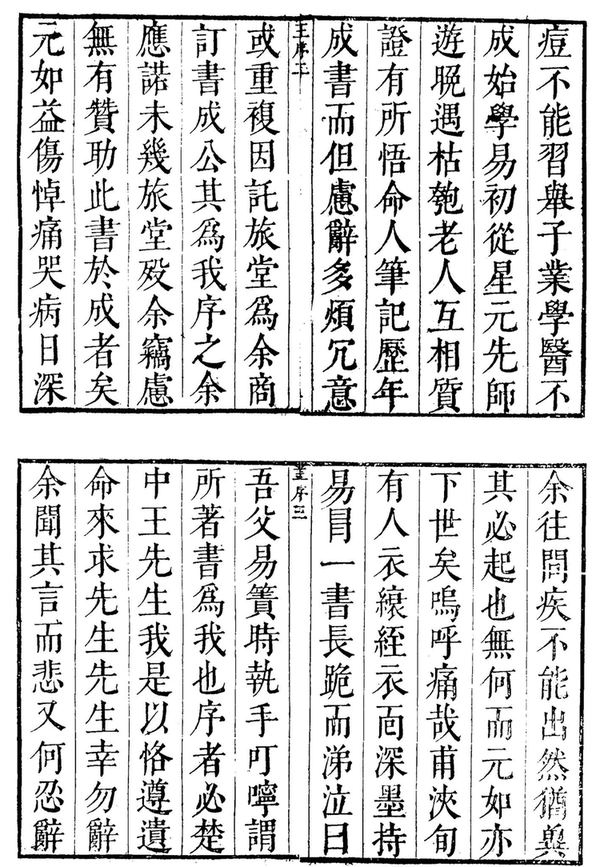 痘不能習舉子業學醫不
成始學易初從星元先師
遊晚遇枯匏老人互相質
證有所悟命人筆記歷年
成書而但慮辭多煩冗意
王序二
或重複因託旅堂爲余商
訂書成公其爲我序之余
應諾未幾旅堂歿余竊慮
無有贊助此書於成者矣
元如益傷悼痛哭病日深
余往問疾不能出然猶冀
其必起也無何而元如亦
下世矣嗚呼痛哉甫浹旬
有人衣縗絰衣靣深墨持
易冐一書長跪而涕泣曰
王序三
吾父易簀時執手叮嚀謂
所著書爲我也序者必楚
中王先生我是以恪遵遺
命來求先生先生幸勿辭
余聞其言而悲又何忍辭